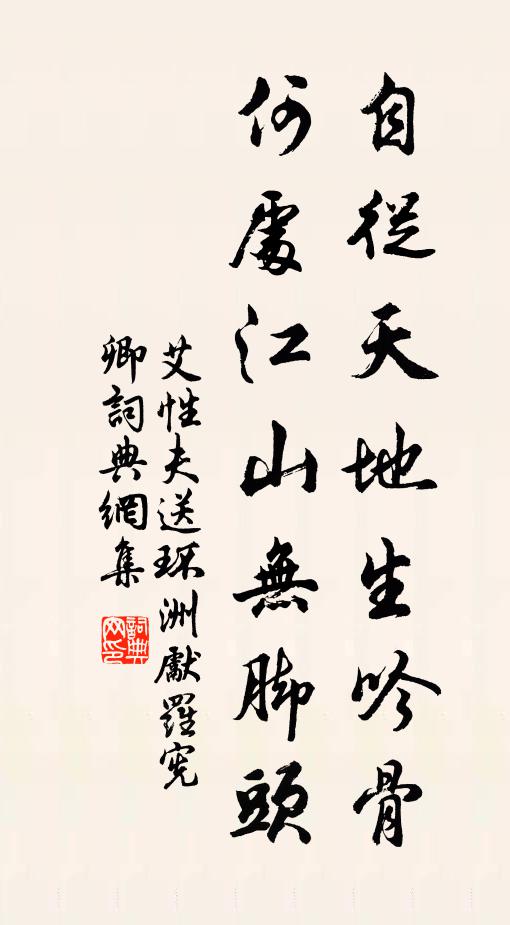 自從天地生吟骨
何處江山無脚頭
艾性夫送环洲獻羅寃
卿詞典網集
詞典網印